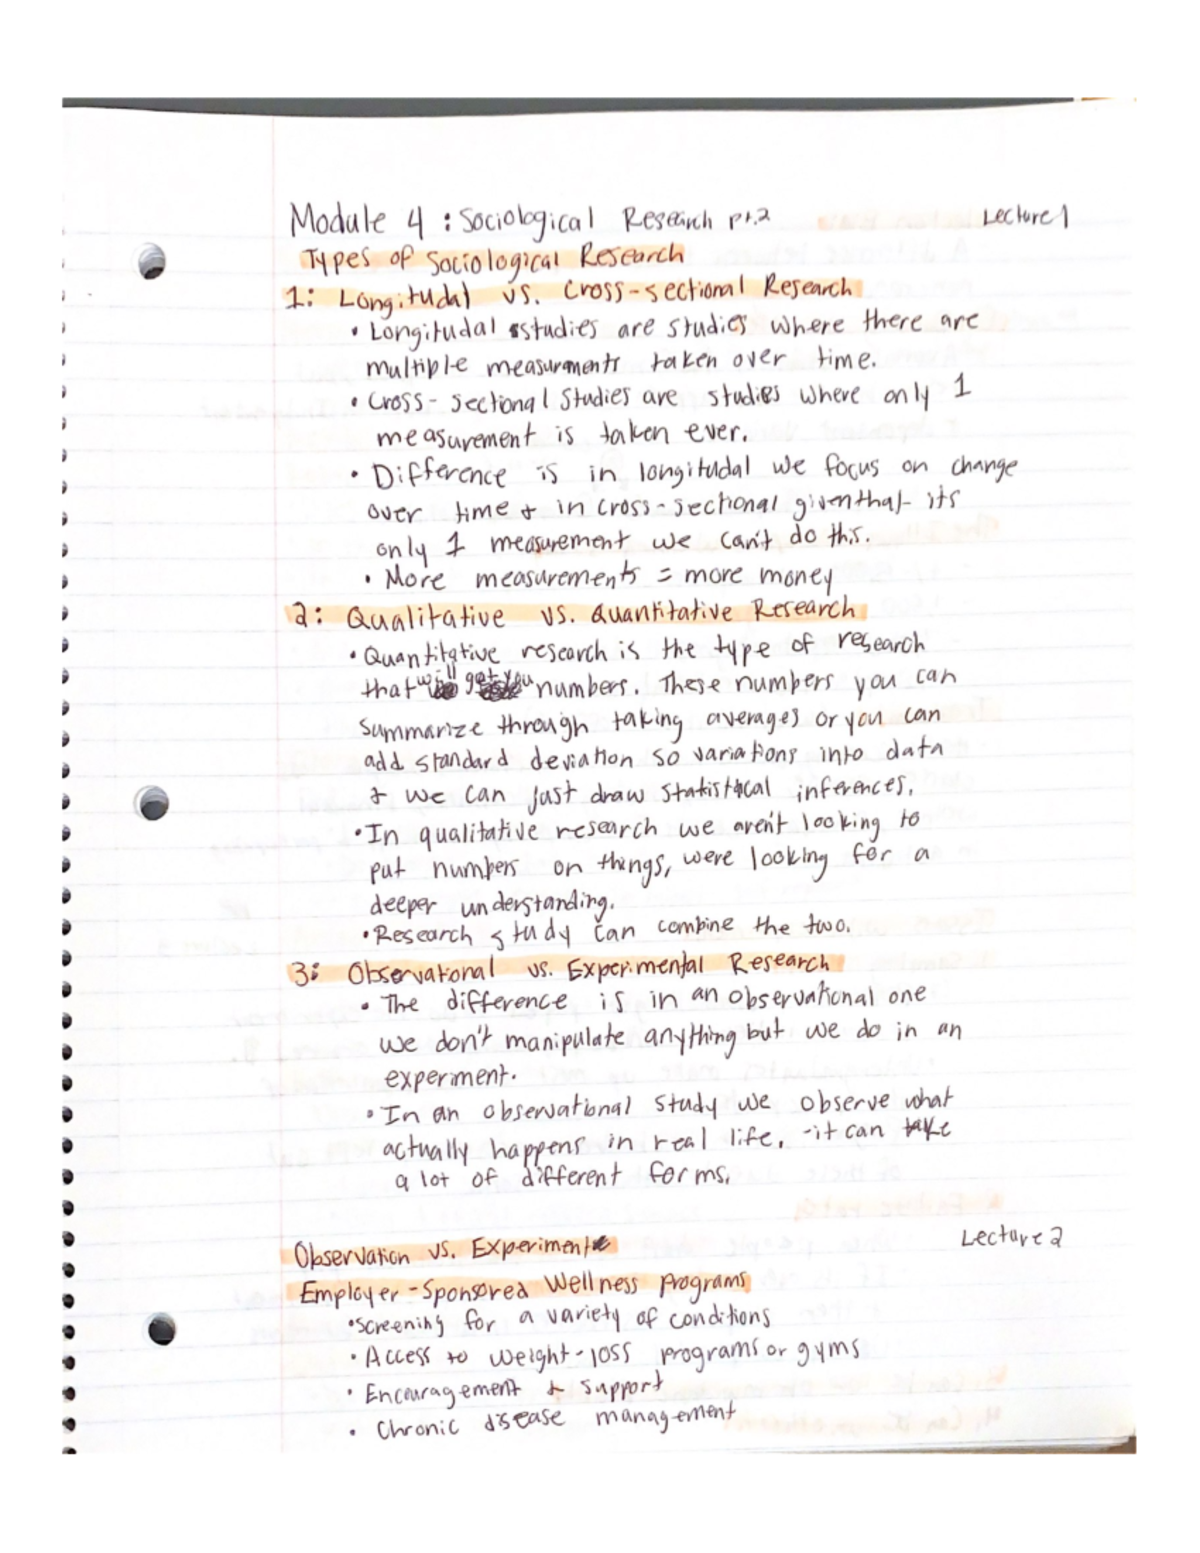 Module 4 : Sociological Research pt.2 Lecture 1
Types of Sociological Research
1: Longitudal vs. Cross-sectional Research
• Longitudal studies are studies where there are
multiple measurments taken over time.
• Cross-sectional studies are studies where only 1
measurement is taken ever.
• Difference is in longitudal we focus on change
over time & in cross-sectional given that its
only 1 measurement we can't do this.
• More measurements = more money
2: Qualitative vs. Quantitative Research
• Quantitative research is the type of research
that will get you numbers. These numbers you can
summarize through taking averages or you can
add standard deviation so variations into data
& we can just draw statistical inferences.
• In qualitative research we aren't looking to
put numbers on things, were looking for a
deeper understanding.
• Research study can combine the two.
3: Observational vs. Experimental Research
• The difference is in an observational one
we don't manipulate anything but we do in an
experiment.
• In an observational study we observe what
actually happens in real life. -it can take
a lot of different forms.
Observation vs. Experiment Lecture 2
Employer-Sponsored Wellness programs
• Screening for a variety of conditions
• Access to weight-loss programs or gyms
• Encouragement & support
• Chronic disease management